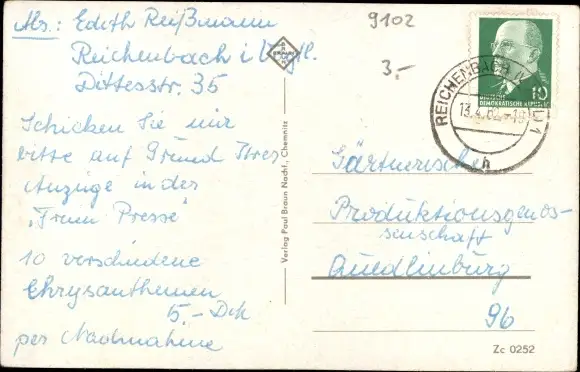 Abs.: Edith Reißmann
Reichenbach i. Vogtl.
Dittesstr. 35
Schicken Sie mir
bitte auf Grund Ihrer
Anzeige in der
"Freien Presse"
10 verschiedene
Chrysanthemen
5,-DM
per Nachnahme
9102
3.-
Verlag Paul Braun Nachf., Chemnitz
REICHENBACH
13.4.62
h
10
DEUTSCHE
DEMOKRATISCHE REPUBLIK
Gärtnerische
Produktionsgenos-
senschaft
Quedlinburg
96
Zc 0252